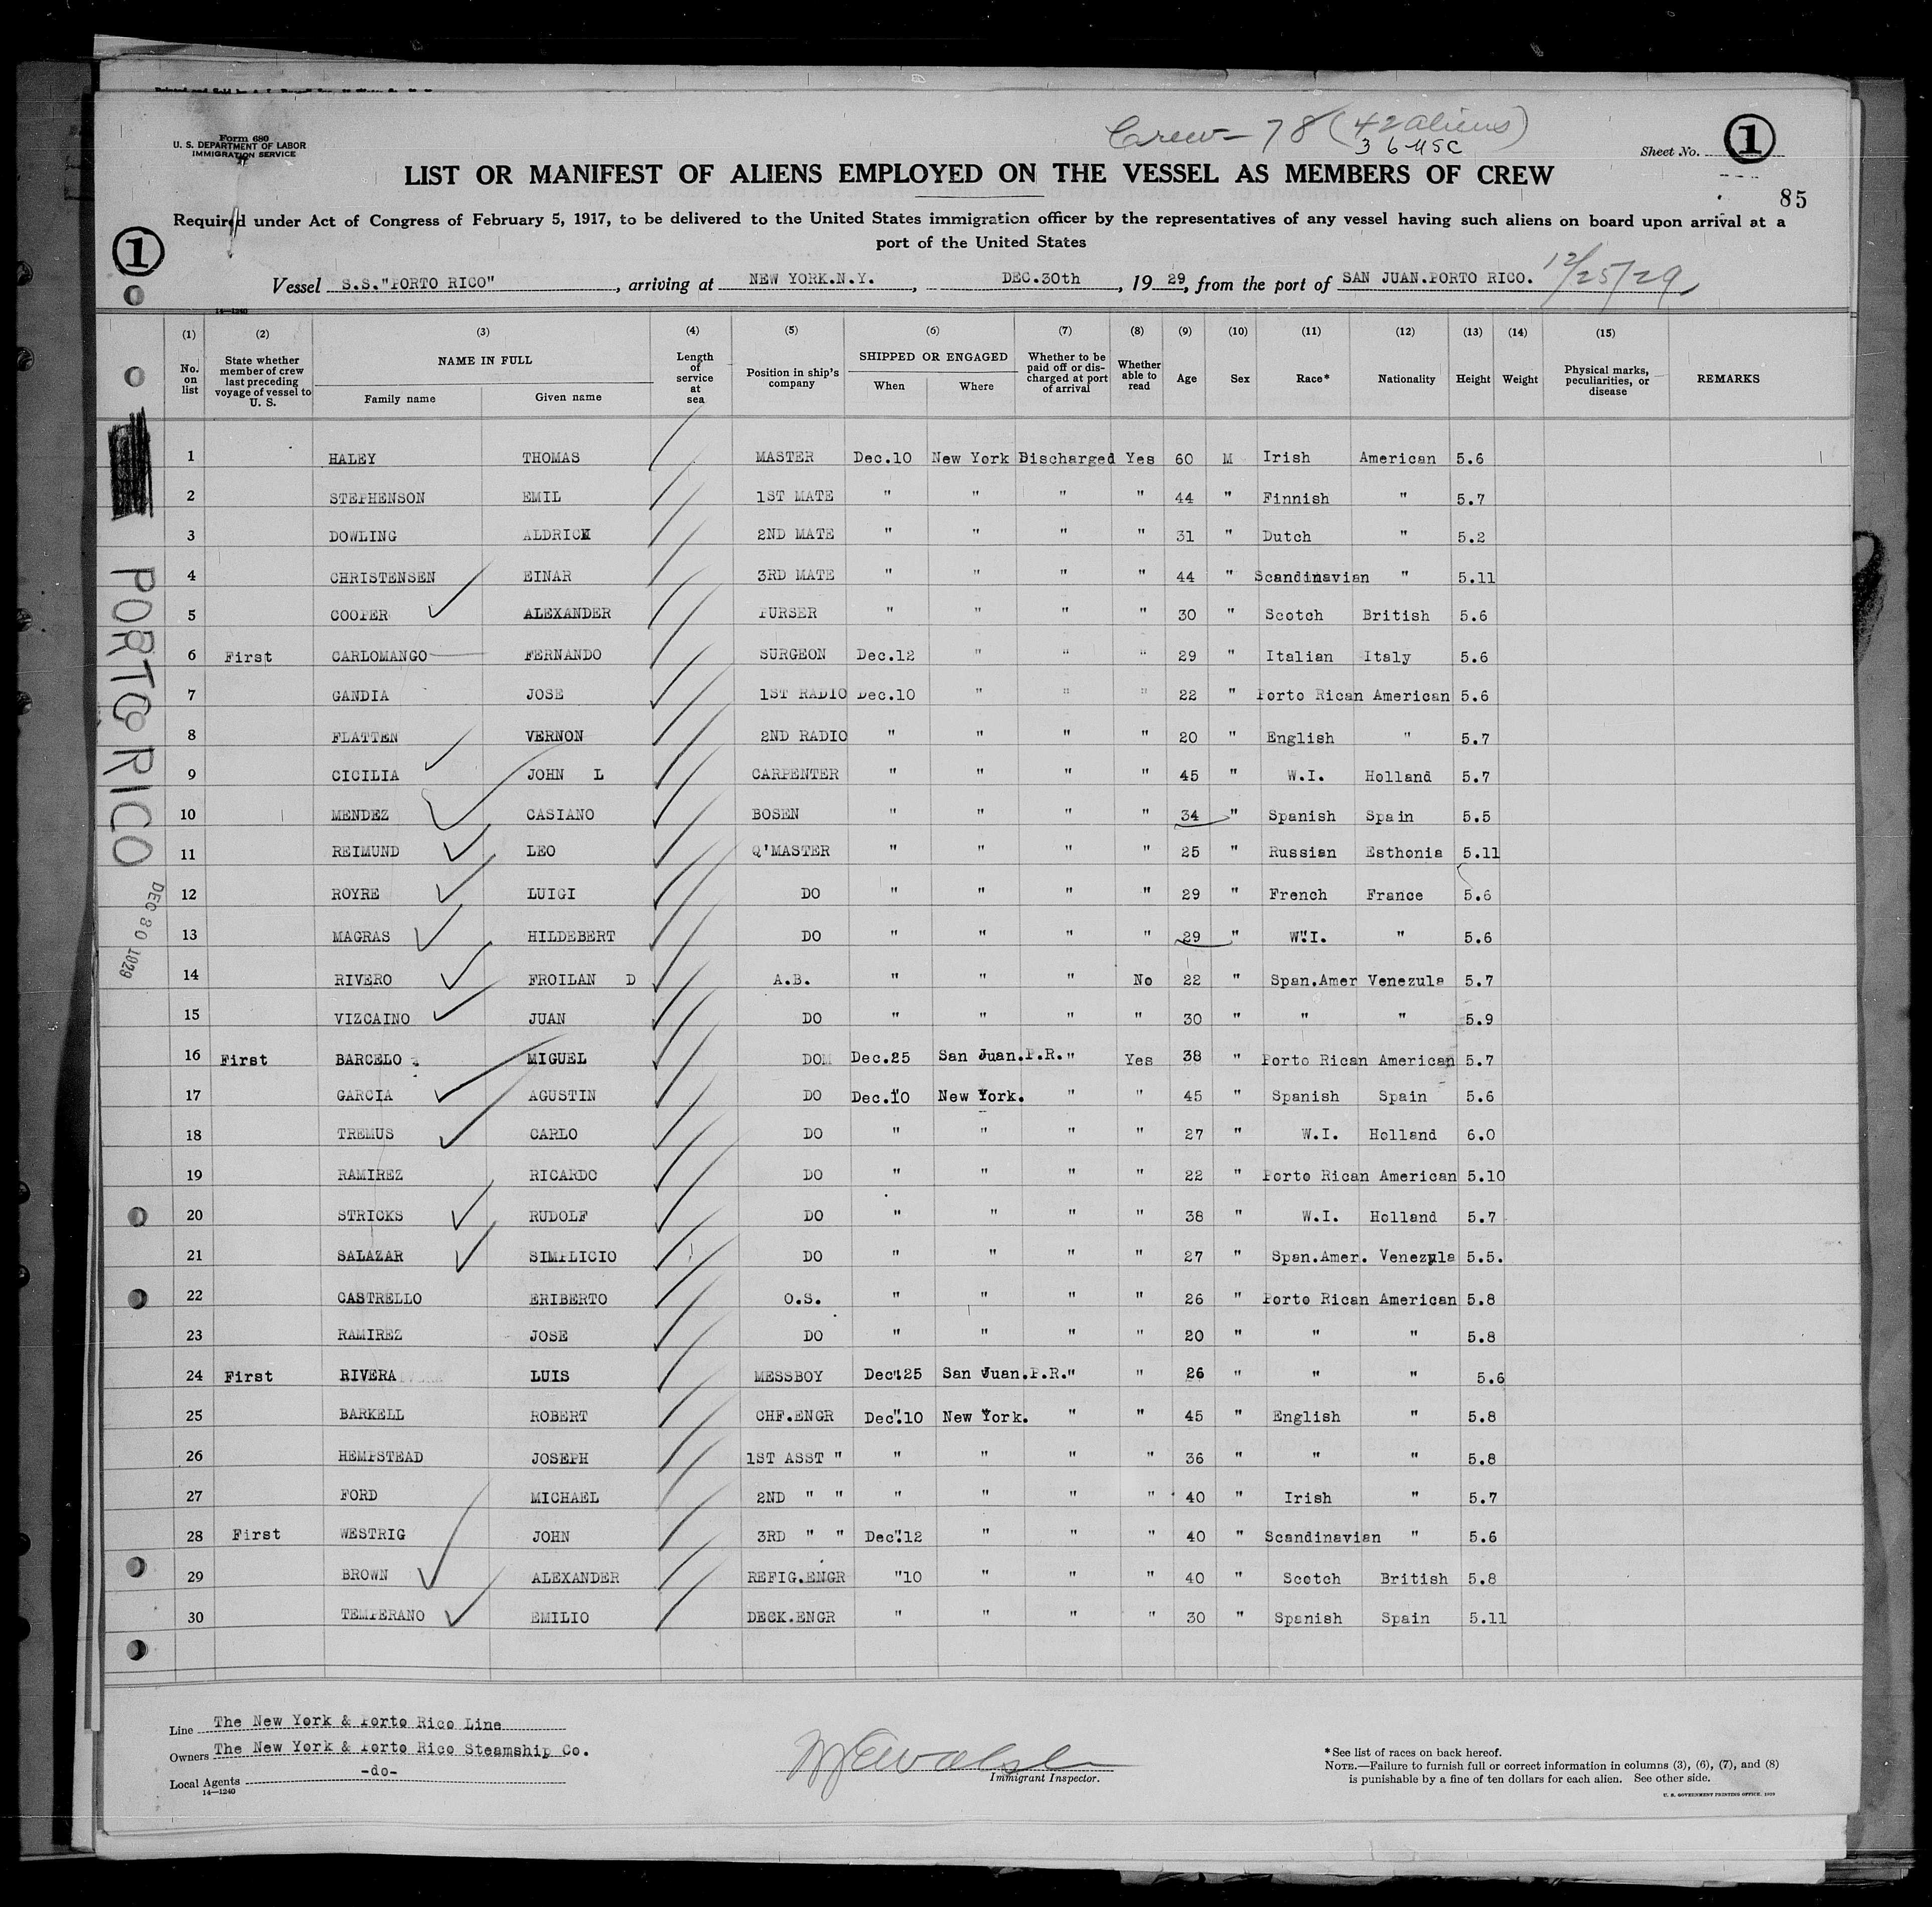 Crew - 78 (42 aliens)
36 USC
Form 680
U. S. DEPARTMENT OF LABOR
IMMIGRATION SERVICE
Sheet No. 1
LIST OR MANIFEST OF ALIENS EMPLOYED ON THE VESSEL AS MEMBERS OF CREW
85
Required under Act of Congress of February 5, 1917, to be delivered to the United States immigration officer by the representatives of any vessel having such aliens on board upon arrival at a
port of the United States
1
Vessel S.S."PORTO RICO", arriving at NEW YORK.N.Y., DEC.30th, 1929, from the port of SAN JUAN.PORTO RICO. 12/25/29
14—1240
(1) (2) (3) (4) (5) (6) (7) (8) (9) (10) (11) (12) (13) (14) (15)
No. on list State whether member of crew last preceding voyage of vessel to U. S. NAME IN FULL Family name Given name Length of service at sea Position in ship's company SHIPPED OR ENGAGED When Where Whether to be paid off or discharged at port of arrival Whether able to read Age Sex Race* Nationality Height Weight Physical marks, peculiarities, or disease REMARKS
1 HALEY THOMAS MASTER Dec.10 New York Discharged Yes 60 M Irish American 5.6
2 STEPHENSON EMIL 1ST MATE " " " " 44 " Finnish " 5.7
3 DOWLING ALDRICK 2ND MATE " " " " 31 " Dutch " 5.2
4 CHRISTENSEN EINAR 3RD MATE " " " " 44 " Scandinavian " 5.11
5 COOPER ALEXANDER PURSER " " " " 30 " Scotch British 5.6
6 First CARLOMANGO FERNANDO SURGEON Dec.12 " " " 29 " Italian Italy 5.6
7 GANDIA JOSE 1ST RADIO Dec.10 " " " 22 " Porto Rican American 5.6
8 FLATTEN VERNON 2ND RADIO " " " " 20 " English " 5.7
9 CICILIA JOHN L CARPENTER " " " " 45 " W.I. Holland 5.7
10 MENDEZ CASIANO BOSEN " " " " 34 " Spanish Spain 5.5
11 REIMUND LEO Q'MASTER " " " " 25 " Russian Esthonia 5.11
12 ROYRE LUIGI DO " " " " 29 " French France 5.6
13 MAGRAS HILDEBERT DO " " " " 29 " W.I. " 5.6
14 RIVERO FROILAN D A.B. " " " No 22 " Span.Amer Venezula 5.7
15 VIZCAINO JUAN DO " " " " 30 " " " 5.9
16 First BARCELO MIGUEL DO Dec.25 San Juan.P.R. " Yes 38 " Porto Rican American 5.7
17 GARCIA AGUSTIN DO Dec.10 New York. " " 45 " Spanish Spain 5.6
18 TREMUS CARLO DO " " " " 27 " W.I. Holland 6.0
19 RAMIREZ RICARDO DO " " " " 22 " Porto Rican American 5.10
20 STRICKS RUDOLF DO " " " " 38 " W.I. Holland 5.7
21 SALAZAR SIMPLICIO DO " " " " 27 " Span.Amer. Venezula 5.5.
22 CASTRELLO ERIBERTO O.S. " " " " 26 " Porto Rican American 5.8
23 RAMIREZ JOSE DO " " " " 20 " " " 5.8
24 First RIVERA LUIS MESSBOY Dec.25 San Juan.P.R. " " 26 " " " 5.6
25 BARKELL ROBERT CHF.ENGR Dec.10 New York. " " 45 " English " 5.8
26 HEMPSTEAD JOSEPH 1ST ASST " " " " " 36 " " " 5.8
27 FORD MICHAEL 2ND " " " " " " 40 " Irish " 5.7
28 First WESTRIG JOHN 3RD " " Dec.12 " " " 40 " Scandinavian " 5.6
29 BROWN ALEXANDER REFIG.ENGR "10 " " " 40 " Scotch British 5.8
30 TEMPERANO EMILIO DECK.ENGR " " " " 30 " Spanish Spain 5.11
PORTO RICO
DEC 30 1929
Line The New York & Porto Rico Line
Owners The New York & Porto Rico Steamship Co.
Local Agents -do-
14—1240
Immigrant Inspector.
*See list of races on back hereof.
NOTE.—Failure to furnish full or correct information in columns (3), (6), (7), and (8)
is punishable by a fine of ten dollars for each alien. See other side.
U. S. GOVERNMENT PRINTING OFFICE, 1929